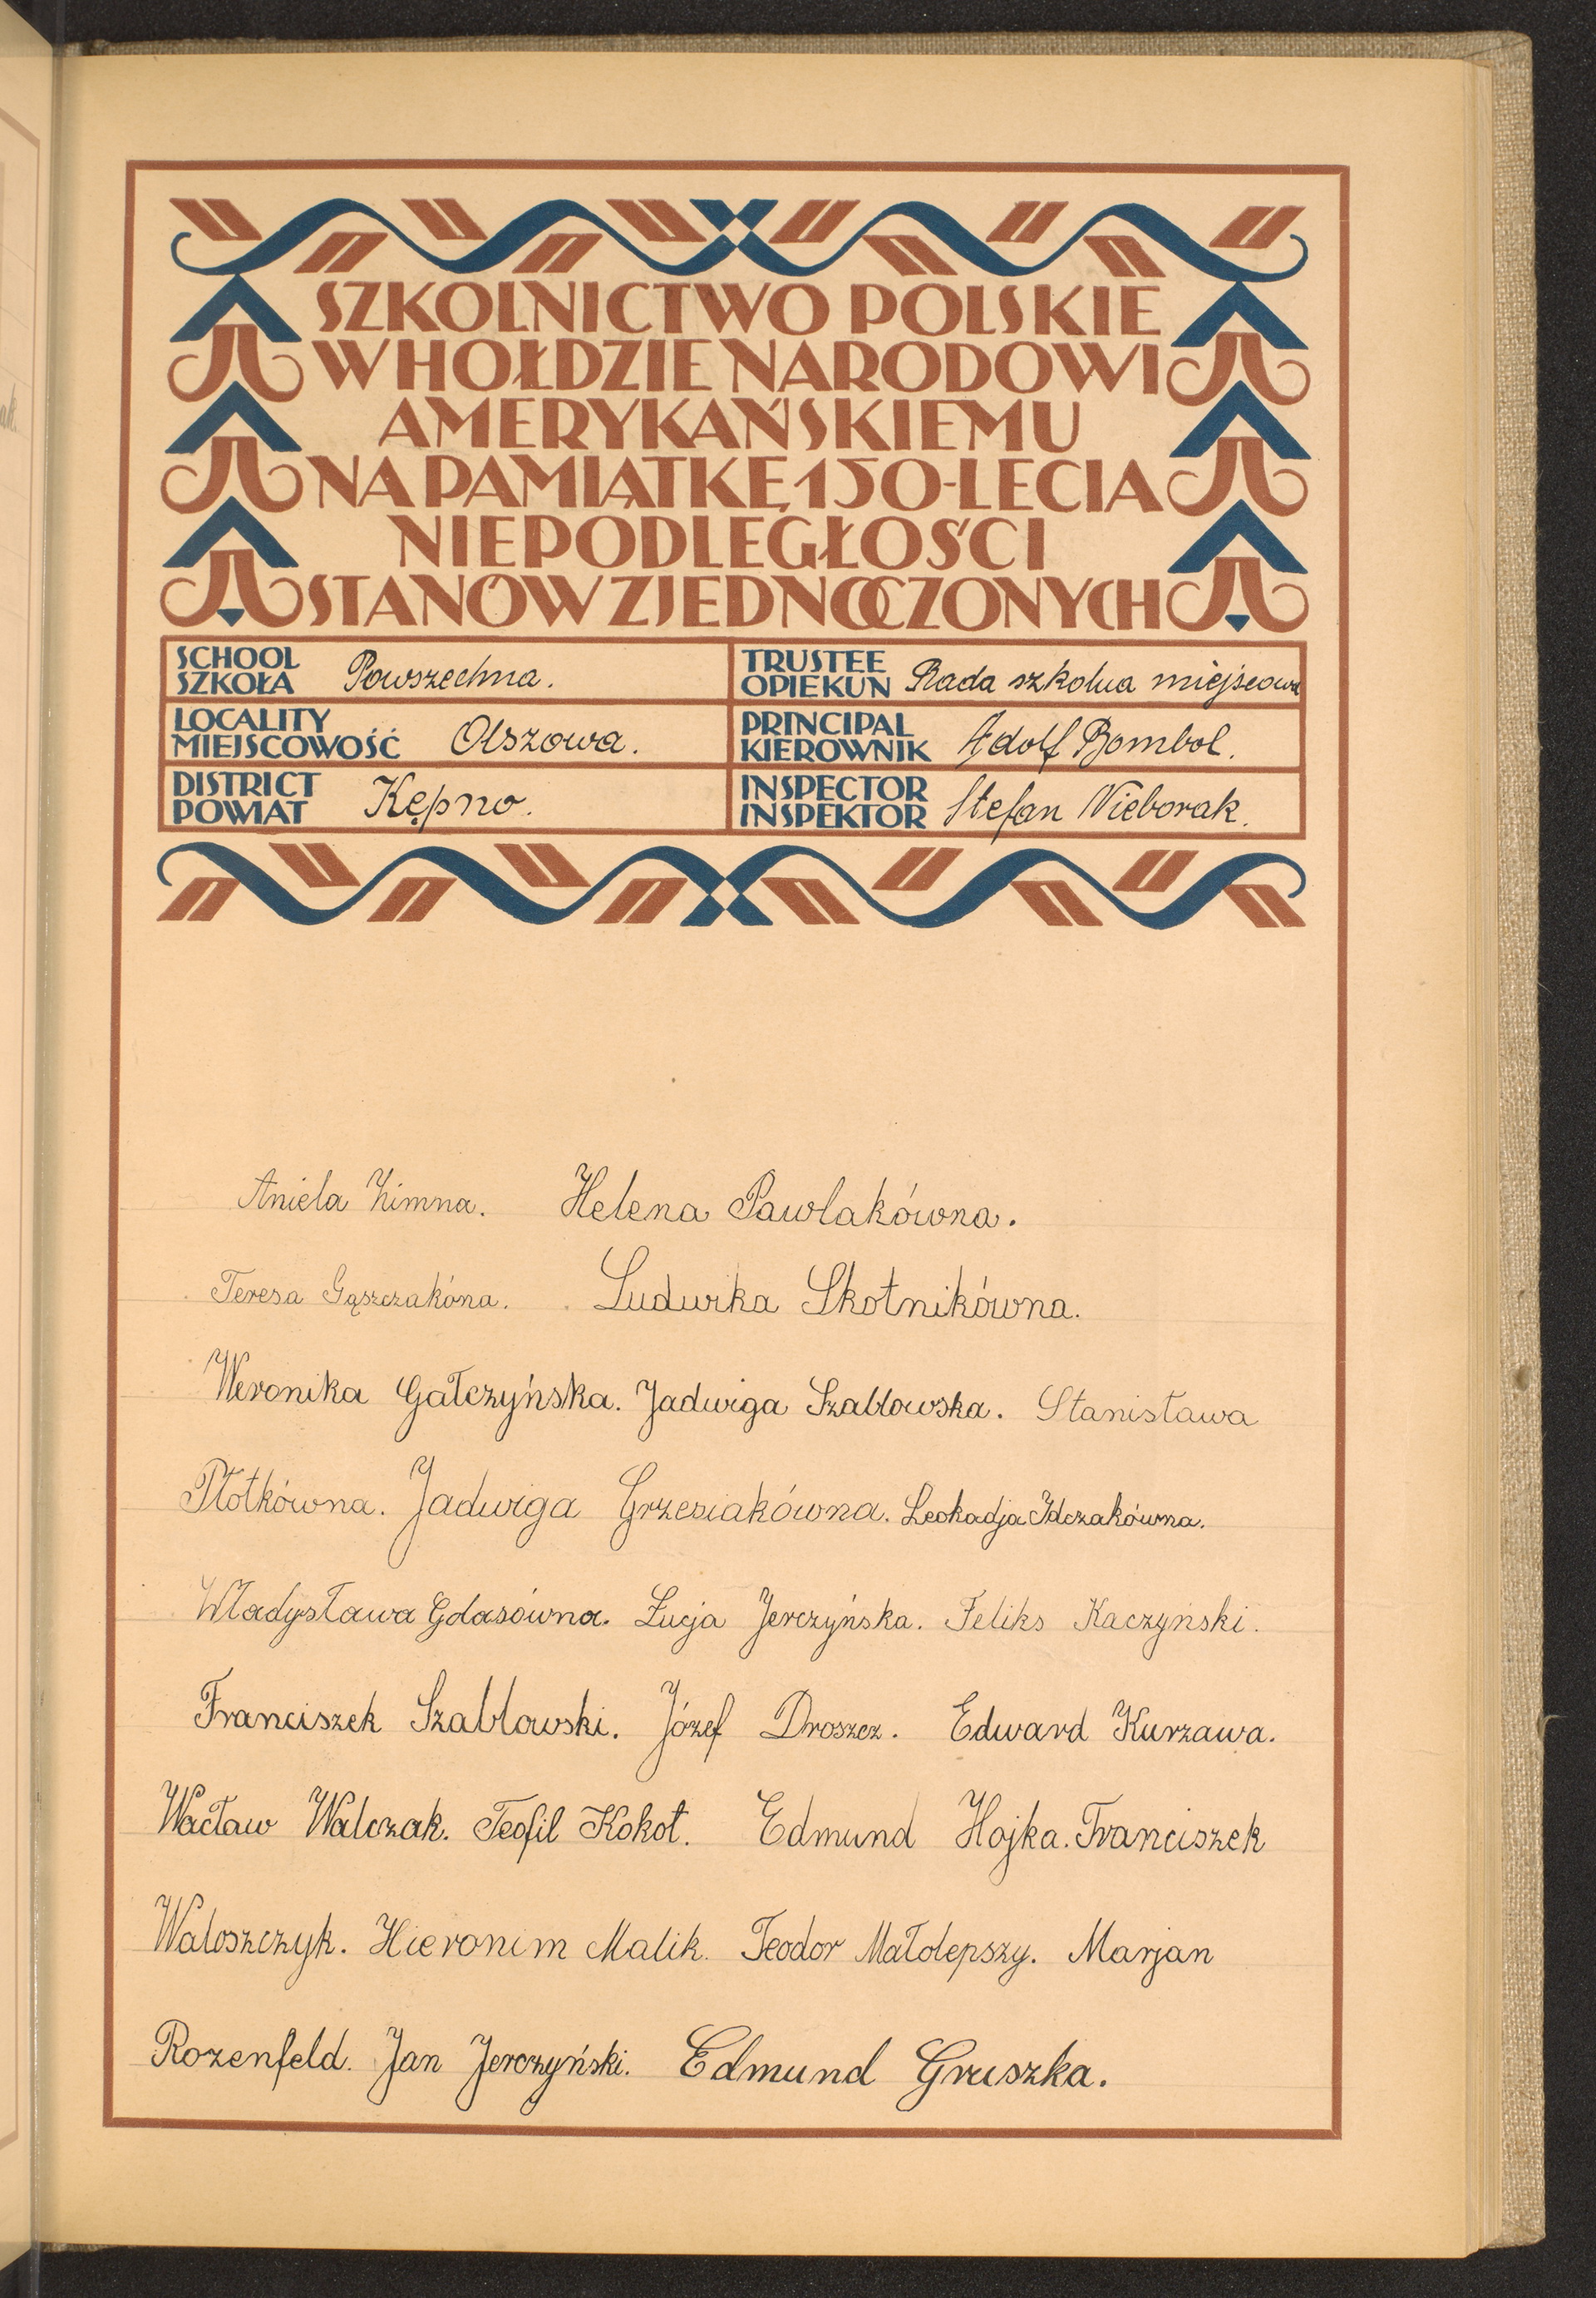 SZKOLNICTWO POLSKIE
W HOŁDZIE NARODOWI
AMERYKAŃSKIEMU
NA PAMIĄTKĘ 150-LECIA
NIEPODLEGŁOŚCI
STANÓW ZJEDNOCZONYCH
SCHOOL
SZKOŁA Powszechna.
TRUSTEE
OPIEKUN Rada szkolna miejscowa
LOCALITY
MIEJSCOWOŚĆ Olszowa.
PRINCIPAL
KIEROWNIK Adolf Bombol.
DISTRICT
POWIAT Kępno.
INSPECTOR
INSPEKTOR Stefan Nieborak.
Aniela Zimna. Helena Pawlakówna.
Teresa Gąszczakóna. Ludwika Skotnikówna.
Weronika Gałczyńska. Jadwiga Szablowska. Stanisława
Płotkówna. Jadwiga Grzesiakówna. Leokadja Idczakówna.
Władysława Gdasówna. Łucja Jerczyńska. Feliks Kaczyński.
Franciszek Szablowski. Józef Droszcz. Edward Kurzawa.
Wacław Walczak. Teofil Kokot. Edmund Hojka. Franciszek
Waloszczyk. Hieronim Malik. Teodor Małolepszy. Marjan
Rozenfeld. Jan Jerczyński. Edmund Gruszka.